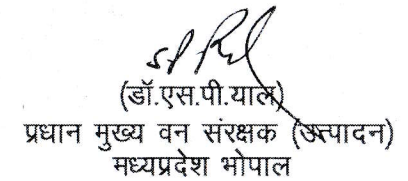 (डॉ.एस.पी.याल)
प्रधान मुख्य वन संरक्षक (उत्पादन)
मध्यप्रदेश भोपाल